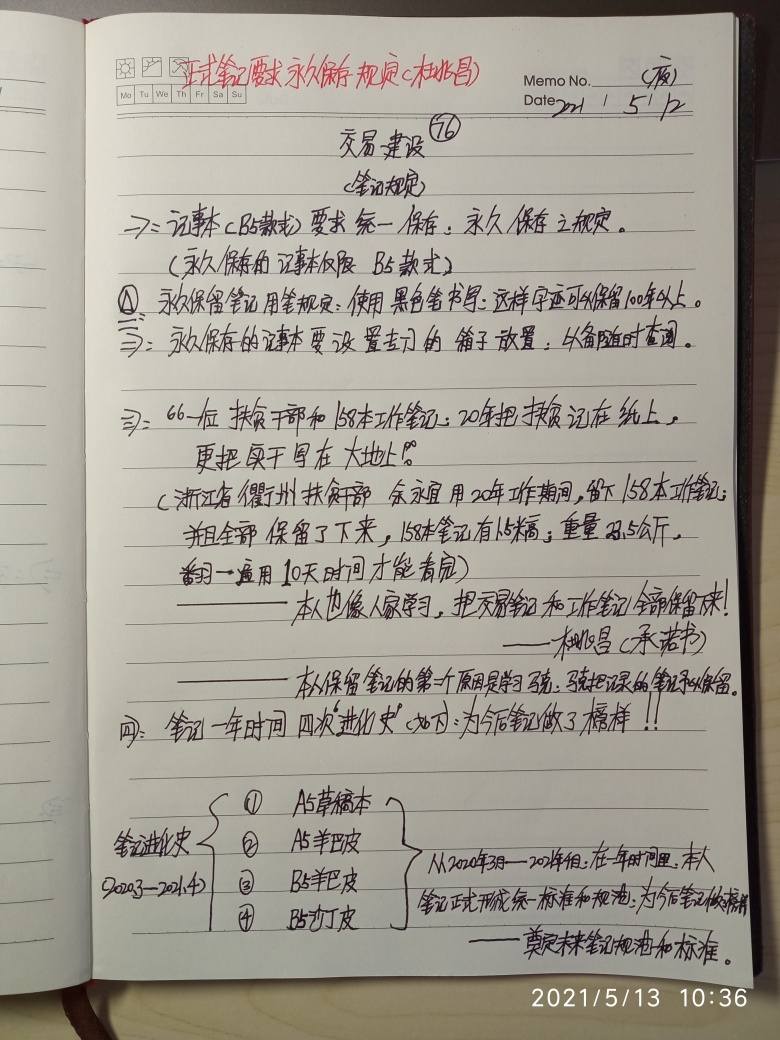 正式笔记要求永久保存规定(杜兆昌)
Mo Tu We Th Fr Sa Su
Memo No. (夜)
Date 2021 / 5 / 12
交易建设 76
(笔记规定)
一>:记事本(B5款式)要求统一保存:永久保存之规定。
(永久保存的记事本仅限B5款式)
永久保留笔记用笔规定:使用黑色笔书写:这样字迹可以保留100年以上。
二>:永久保存的记事本要设置专门的箱子放置:以备随时查阅。
三>:“一位扶贫干部和158本工作笔记:20年把扶贫记在纸上,
更把实干写在大地上”。
(浙江省衢州扶贫干部余永宜用20年工作期间,留下158本工作笔记;
并且全部保留了下来,158本笔记有1.5米高;重量23.5公斤,
翻一遍用10天时间才能看完)
——本人也像人家学习,把交易笔记和工作笔记全部保留下来!
——杜兆昌(承诺书)
——本人保留笔记的第一个原因是学习马克:马克把记录的笔记予以保留。
四>:笔记一年时间四次“进化史”(如下):为今后笔记做了榜样!!
① A5草稿本
笔记进化史
② A5羊巴皮
(2020.3—2021.4)
③ B5羊巴皮
④ B5沙丁皮
从2020年3月—2021年4月:在一年时间里:本人
笔记正式形成统一标准和规范:为今后笔记做榜样
——奠定未来笔记规范和标准。
2021/5/13 10:36